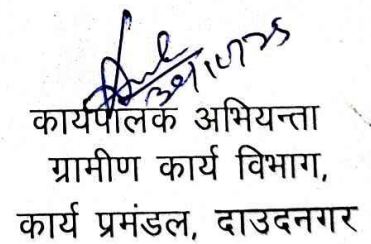 कार्यपालक अभियन्ता
ग्रामीण कार्य विभाग,
कार्य प्रमंडल, दाउदनगर